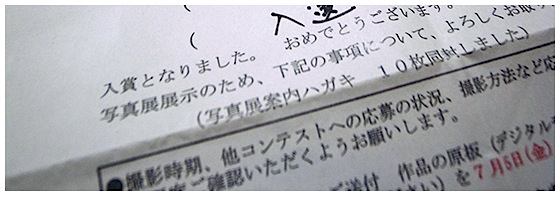 入選
(
(
入賞となりました。 おめでとうございます。
写真展展示のため、下記の事項について、よろしくお取
(写真展案内ハガキ 10枚同封しました)
●撮影時期、他コンテストへの応募の状況、撮影方法など応
ご確認いただくようお願いします。
ご送付 作品の原板(デジタル
さい)を7月5日(金)